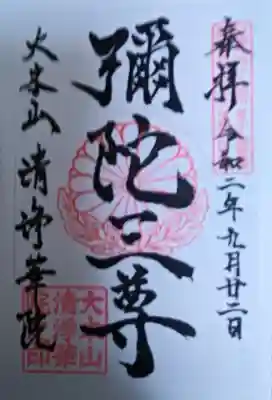 奉拝 令和二年九月廿二日
彌陀三尊
大本山 清浄華院
大本山
清浄華
院印